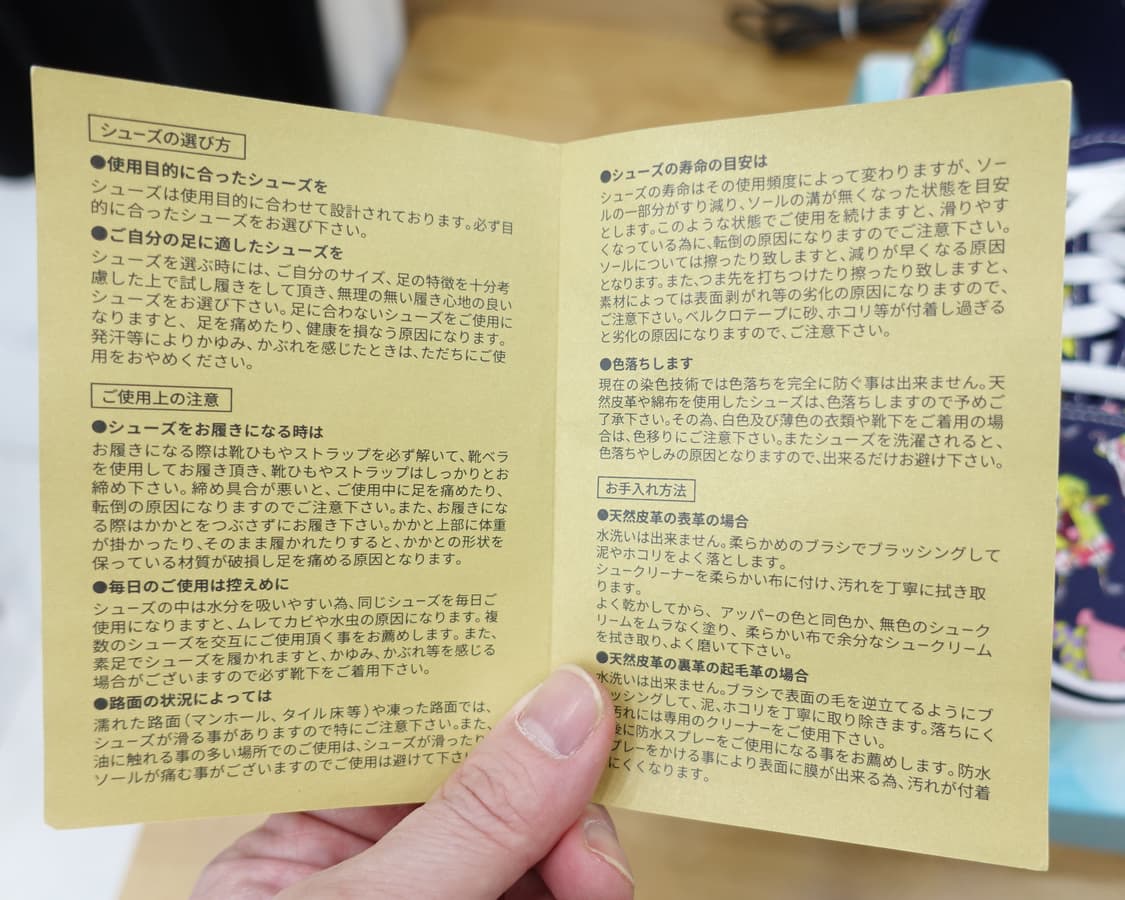 シューズの選び方
●使用目的に合ったシューズを
シューズは使用目的に合わせて設計されております。必ず目
的に合ったシューズをお選び下さい。
●ご自分の足に適したシューズを
シューズを選ぶ時には、ご自分のサイズ、足の特徴を十分考
慮した上で試し履きをして頂き、無理の無い履き心地の良い
シューズをお選び下さい。足に合わないシューズをご使用に
なりますと、足を痛めたり、健康を損なう原因になります。
発汗等によりかゆみ、かぶれを感じたときは、ただちにご使
用をおやめください。
ご使用上の注意
●シューズをお履きになる時は
お履きになる際は靴ひもやストラップを必ず解いて、靴ベラ
を使用してお履き頂き、靴ひもやストラップはしっかりとお
締め下さい。締め具合が悪いと、ご使用中に足を痛めたり、
転倒の原因になりますのでご注意下さい。また、お履きにな
る際はかかとをつぶさずにお履き下さい。かかと上部に体重
が掛かったり、そのまま履かれたりすると、かかとの形状を
保っている材質が破損し足を痛める原因となります。
●毎日のご使用は控えめに
シューズの中は水分を吸いやすい為、同じシューズを毎日ご
使用になりますと、ムレてカビや水虫の原因になります。複
数のシューズを交互にご使用頂く事をお薦めします。また、
素足でシューズを履かれますと、かゆみ、かぶれ等を感じる
場合がございますので必ず靴下をご着用下さい。
●路面の状況によっては
濡れた路面(マンホール、タイル床等)や凍った路面では、
シューズが滑る事がありますので特にご注意下さい。また、
油に触れる事の多い場所でのご使用は、シューズが滑ったり
ソールが痛む事がございますのでご使用は避けて下さ
●シューズの寿命の目安は
シューズの寿命はその使用頻度によって変わりますが、ソー
ルの一部分がすり減り、ソールの溝が無くなった状態を目安
とします。このような状態でご使用を続けますと、滑りやす
くなっている為に、転倒の原因になりますのでご注意下さい。
ソールについては擦ったり致しますと、減りが早くなる原因
となります。また、つま先を打ちつけたり擦ったり致しますと、
素材によっては表面剥がれ等の劣化の原因になりますので、
ご注意下さい。ベルクロテープに砂、ホコリ等が付着し過ぎる
と劣化の原因になりますので、ご注意下さい。
●色落ちします
現在の染色技術では色落ちを完全に防ぐ事は出来ません。天
然皮革や綿布を使用したシューズは、色落ちしますので予めご
了承下さい。その為、白色及び薄色の衣類や靴下をご着用の場
合は、色移りにご注意下さい。またシューズを洗濯されると、
色落ちやしみの原因となりますので、出来るだけお避け下さい。
お手入れ方法
●天然皮革の表革の場合
水洗いは出来ません。柔らかめのブラシでブラッシングして
泥やホコリをよく落とします。
シュークリーナーを柔らかい布に付け、汚れを丁寧に拭き取
ります。
よく乾かしてから、アッパーの色と同色か、無色のシューク
リームをムラなく塗り、柔らかい布で余分なシュークリーム
を拭き取り、よく磨いて下さい。
●天然皮革の裏革の起毛革の場合
水洗いは出来ません。ブラシで表面の毛を逆立てるようにブ
ッシングして、泥、ホコリを丁寧に取り除きます。落ちにく
汚れには専用のクリーナーをご使用下さい。
後に防水スプレーをご使用になる事をお薦めします。防水
プレーをかける事により表面に膜が出来る為、汚れが付着
にくくなります。